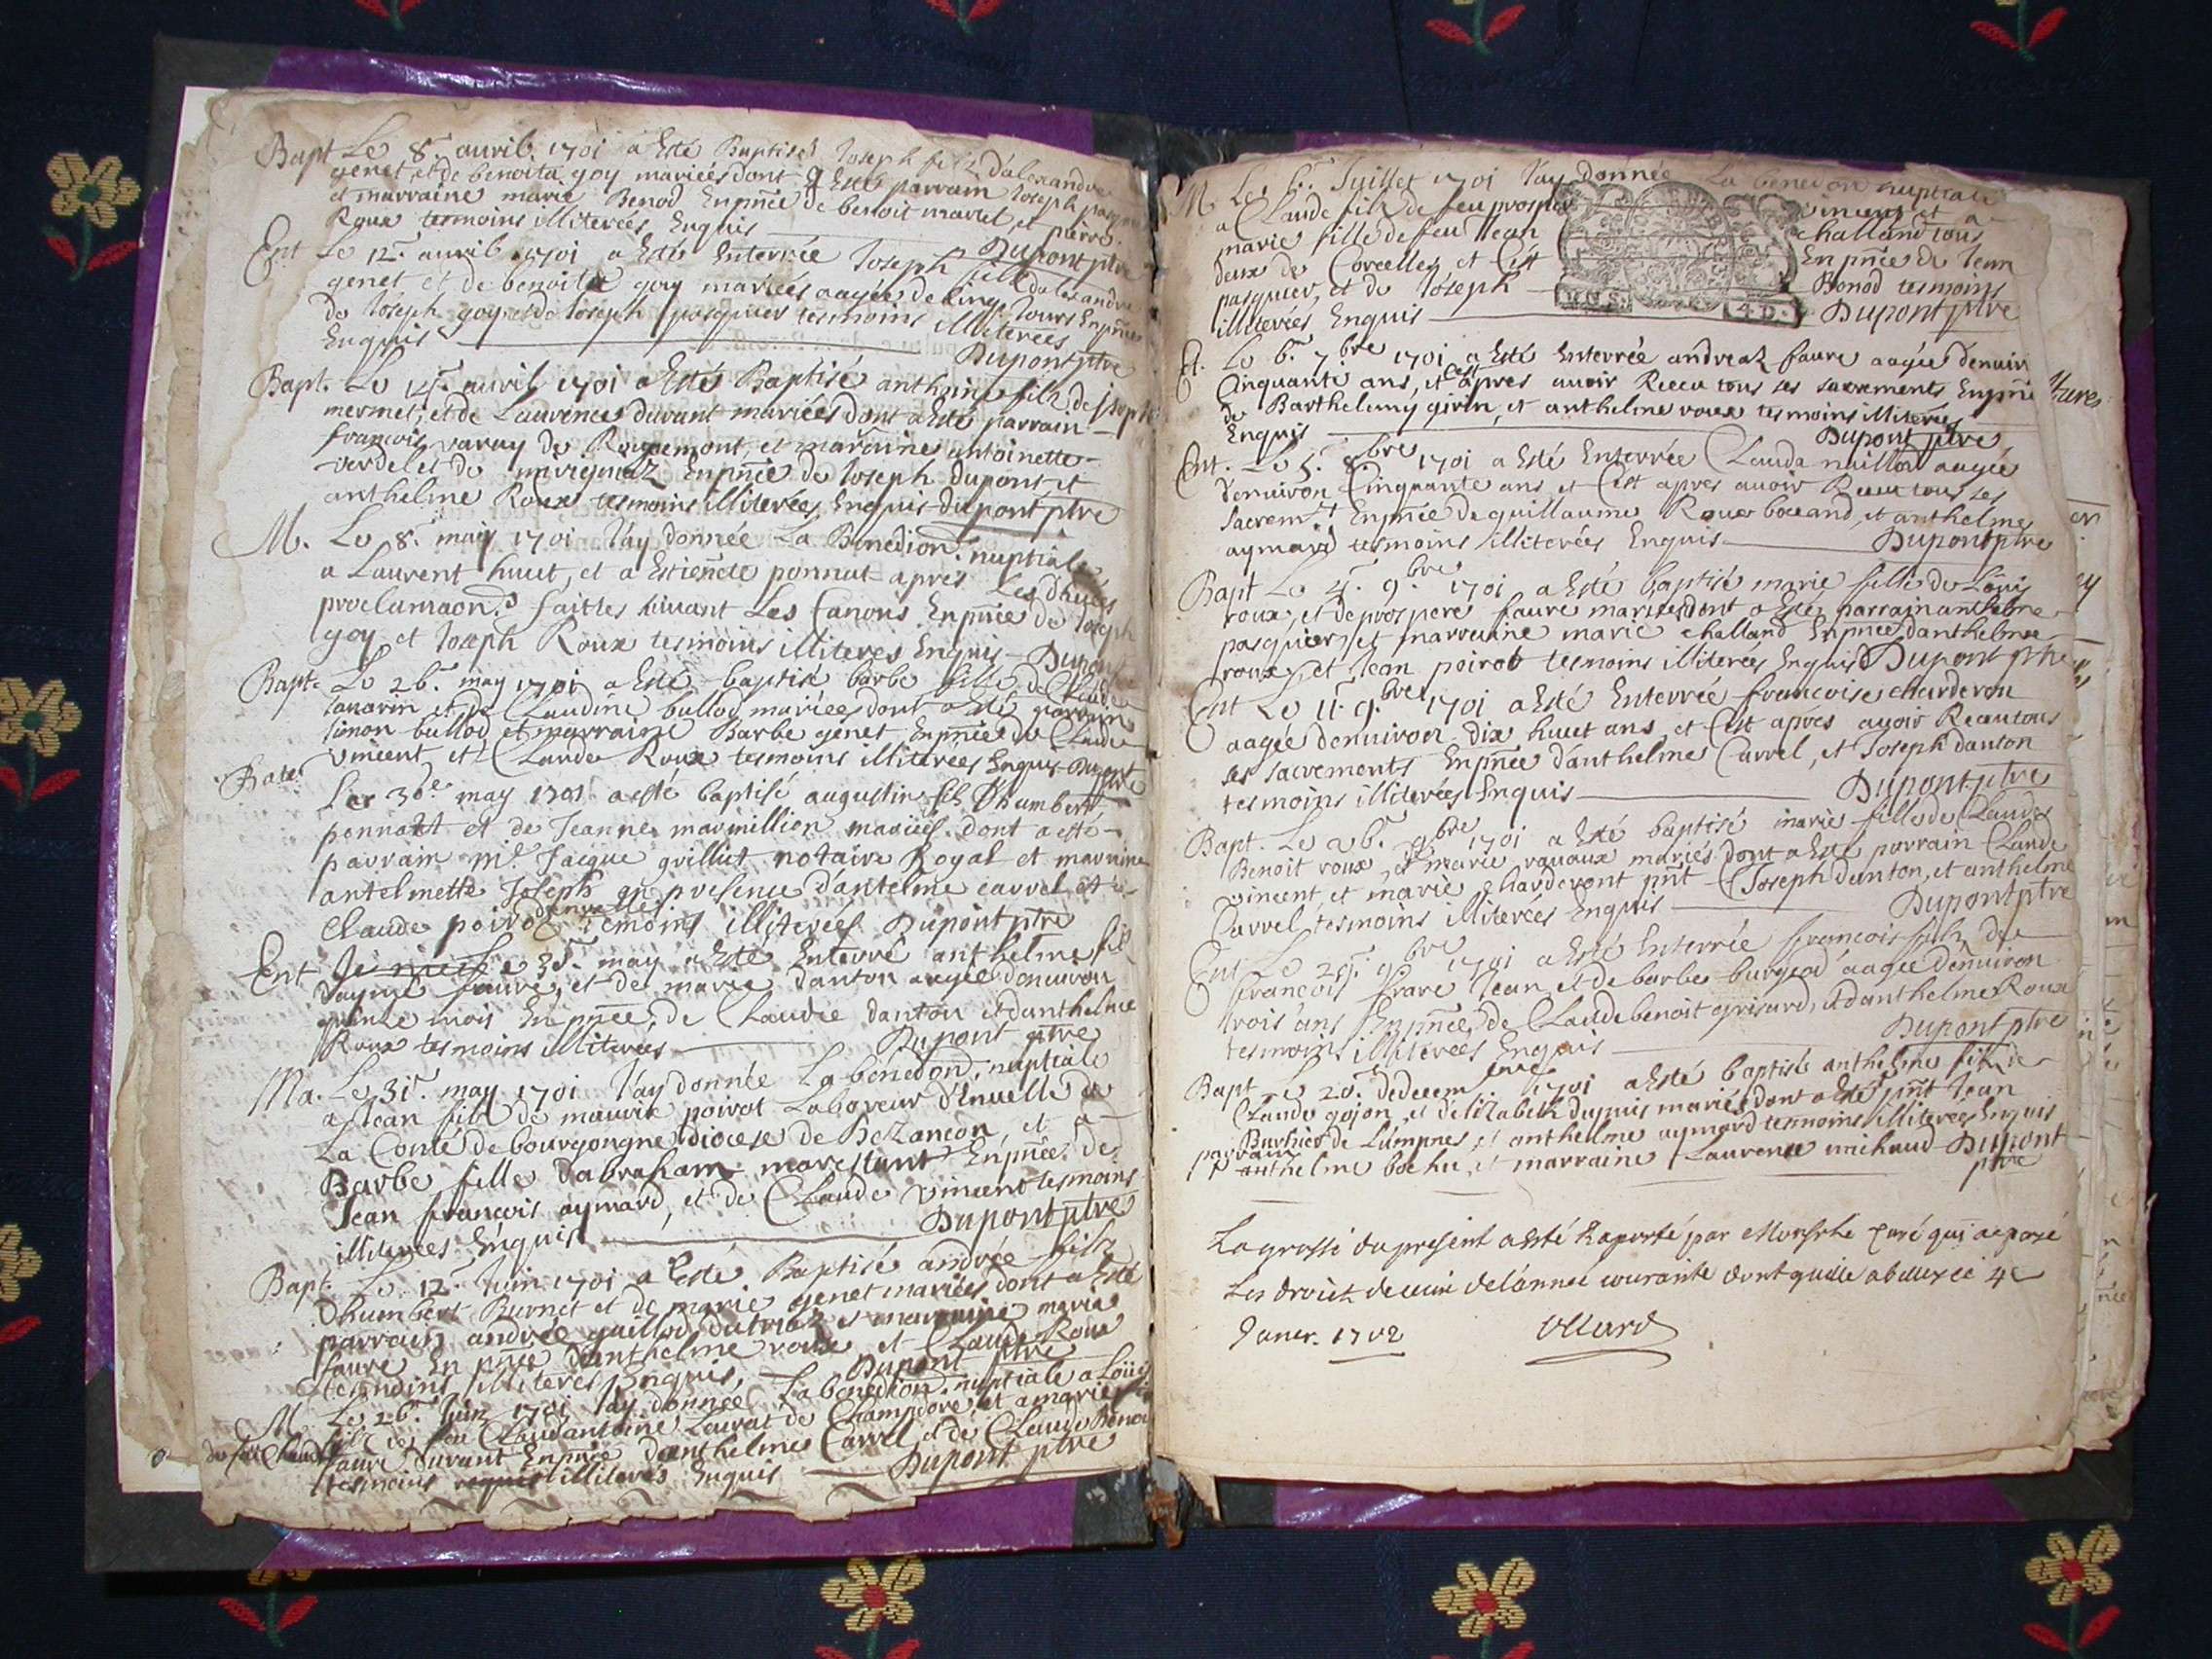 Bapt Le 8.e auril 1701 a Esté Baptisé Joseph filz d'alexandre
genet, et de benoita goy mariées dont a Esté parrain Joseph
et marraine marie Benod Enpñce de benoit martel et pierre
Roux tesmoins illiterées Enquis Dupont ptre
Ent Le 12.e auril 1701 a Esté Enterrée Joseph filz dalexandre
genet et de benoite goy mariées aagée de cinq Jours Enpñce
de Joseph goy et de Joseph pasquier tesmoins illiterées
Enquis Dupont ptre
Bapt. Le 14.e auril 1701 a Esté Baptisé anthoine filz de Joseph
mermet, et de Laurence durant mariées dont a Esté parrain
francois varay de Rougemont, et maraine antoinette
verdelet de Enpñce de Joseph dupont et
anthelme Roux tesmoins illiterées Enquis Dupont ptre
M. Le 8. may 1701 Jay donnée La Benedion nuptiale
a Laurent huut, et a Estiennete ponnat apres Les dhues
proclamaons faittes suivant Les Canons Enpñce de Joseph
goy et Joseph Roux tesmoins illiteres Enquis Dupont
Bapt Le 26.e may 1701 a Esté baptisé barbe fille de Claude
tavarin et de Claudine bullod mariées dont a Esté parrain
simon bullod et marraine Barbe genet Enpñce de Claude
vincent et Claude Roux tesmoins illiterées Enquis Dupont
ptre
Bate. Le 30e may 1701 a esté baptisé augustin fils d'humbert
ponnatt et de Jeanne marmillion mariées dont a esté
parrain me Jacque grilliet notaire Royal et marraine
antelmette Joseph en presence d'antelme carrel et
Claude poirod d'envelle temoins illiterées Dupont ptre
Ent Le 30.e may a Esté Enterré anthelme fil
d'aymé faure, et de marie danton aagée denuiron
quinze mois Enpñce de Claude danton et danthelme
Roux tesmoins illiterées Dupont ptre
Ma. Le 31.e may 1701 Jay donnée La benedon nuptiale
a Jean filz de maurix poirot Laboreur d'Enuelle de
La Conté de bourgongne diocese de Bezancon, et a
Barbe fille dabraham marestant Enpñce de
Jean francois aymard, et de Claude vincent tesmoins
illiterées Enquis Dupont ptre
Bapt. Le 12.e Juin 1701 a Esté Baptisé andrée filz
Dhumbert Burnet et de marie genet mariées dont a Esté
parrain andrée guillod et marraine marie
faure En pñce danthelme roux et Claude Roux
tesmoins illiteres Enquis, Dupont ptre
M. Le 26.e Juin 1701 Jay donnée La benedion nuptiale a Loüis
filz de feu Claud antoine Laurat de Champdore, et a marie
faure durant Enpñce danthelme Carrel et de Claude Benod
tesmoins illiterés Enquis Dupont ptre
M. Le 6.e Juillet 1701 Jay donnée La benedon nuptiale
a Claude filz de feu prosper vincent et a
marie fille de feu Jean challand tous
deux de Corcelles et Cest Enpñce de Jean
pasquier, et de Joseph Benod tesmoins
illiterées Enquis Dupont ptre
Et. Le 6.e 7bre 1701 a Esté Enterrée andreaz faure aagée denuir
Cinquante ans, et cest apres auoir Receu tous ses sacrements Enpñc
de Barthelemy girin, et anthelme roux tesmoins illiterées
Enquis Dupont ptre
Ent. Le 5.e 8bre 1701 a Esté Enterrée Clauda nuillod aagée
denuiron Cinquante ans et Cest apres auoir Receu tous ses
sacremts Enpñce de guillaume Roux boccand, et anthelme
aymard tesmoins illiterées Enquis Dupont ptre
Bapt Le 4.e 9bre 1701 a Esté baptisé marie fille de Louis
roux, et de prospere faure mariées dont a Esté parrain anthelme
pasquier, et marraine marie challand Enpñce danthelme
roux, et Jean poirot tesmoins illiterées Enquis Dupont ptre
Ent Le 11.e 9bre 1701 a Esté Enterrée francoise charderon
aagée denuiron dix huict ans, et Cest apres auoir Receu tous
les sacrements Enpñce danthelme Carrel, et Joseph danton
tesmoins illiterées Enquis Dupont ptre
Bapt. Le 26.e 9bre 1701 a Esté baptisé marie fille de Claude
Benoit roux, et marie rauaux mariés dont a Esté parrain Claude
vincent, et marie charderont pñt Joseph danton, et anthelme
Carrel tesmoins illiterées Enquis Dupont ptre
Ent Le 29.e 9bre 1701 a Esté Enterrée francois filz de
francois frare Jean et de barbe burgod aagée denuiron
trois ans Enpñce de Claude benoit grisard, et danthelme Roux
tesmoins illiterées Enquis Dupont ptre
Bapt Le 20.e dedecembre 1701 a Esté baptisé anthelme filz de
Claude gojon, et delizabeth dupuis mariés dont a Esté pñt Jean
Burhier de Lompnes, et anthelme aymard tesmoins illiterees Enquis
parrain anthelme bochu, et marraine Laurence michaud Dupont
ptre
La grosse du present a esté Raporté par Curé qui a payé
Les droits de l'année courante dont quitte 4e
Janer. 1702